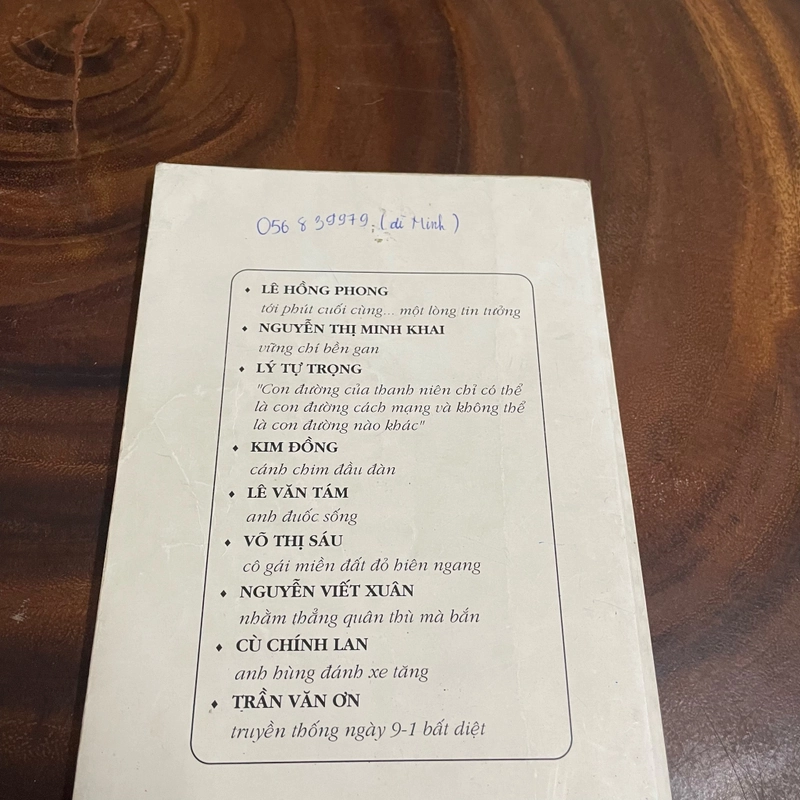 056 839979, (dì Minh)
LÊ HỒNG PHONG
tới phút cuối cùng... một lòng tin tưởng
NGUYỄN THỊ MINH KHAI
vững chí bền gan
LÝ TỰ TRỌNG
"Con đường của thanh niên chỉ có thể
là con đường cách mạng và không thể
là con đường nào khác"
KIM ĐỒNG
cánh chim đầu đàn
LÊ VĂN TÁM
anh đuốc sống
VÕ THỊ SÁU
cô gái miền đất đỏ hiên ngang
NGUYỄN VIẾT XUÂN
nhằm thẳng quân thù mà bắn
CÙ CHÍNH LAN
anh hùng đánh xe tăng
TRẦN VĂN ƠN
truyền thống ngày 9-1 bất diệt